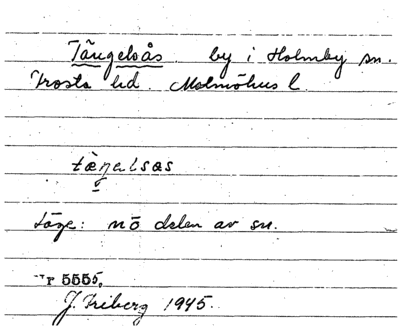 Tängelsås by i Holmby sn.
Frosta hd. Malmöhus l.
tæŋəlsas
Läge: nö delen av sn.
r 5555.
J. Friberg 1945.